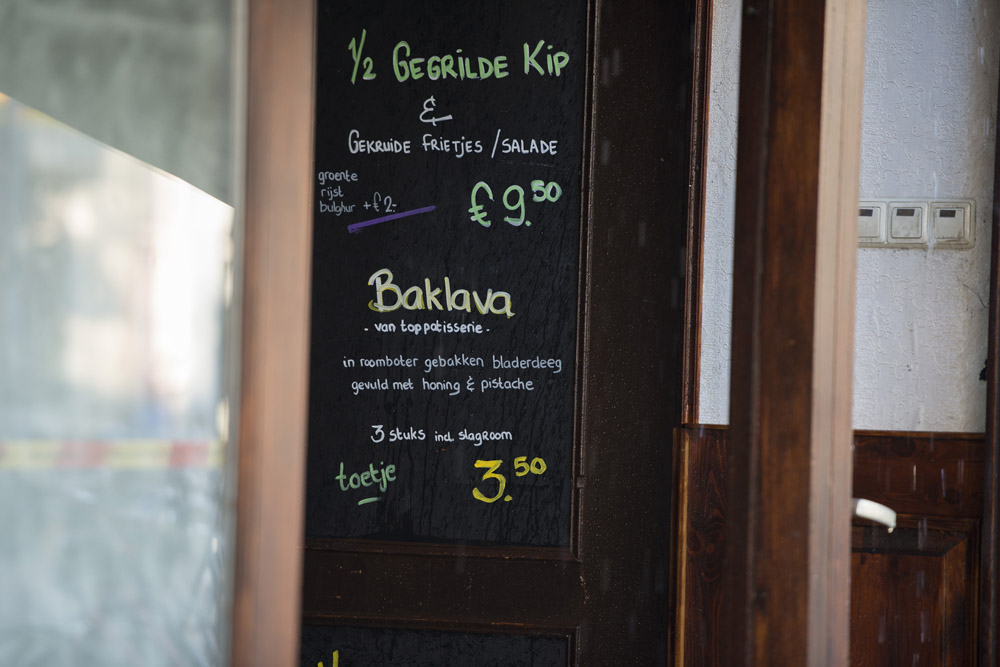 1/2 GEGRILDE KIP
&
GEKRUIDE FRIETJES / SALADE
groente
rijst
bulghur +€2,-
€9.50
Baklava
- van toppatisserie -
in roomboter gebakken bladerdeeg
gevuld met honing & pistache
3 stuks incl. slagroom
toetje 3.50